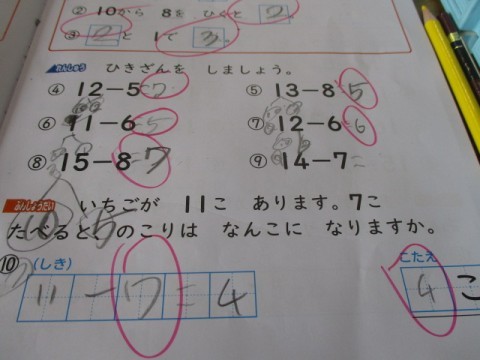 ② 10から 8を ひくと 2
③ 2と 1で 3
れんしゅう ひきざんを しましょう。
④ 12-5=7 ⑤ 13-8=5
⑥ 11-6=5 ⑦ 12-6=6
⑧ 15-8=7 ⑨ 14-7=
ぶんしょうだい いちごが 11こ あります。7こ
たべると、のこりは なんこに なりますか。
⑩ (しき) こたえ
11-7=4 4こ